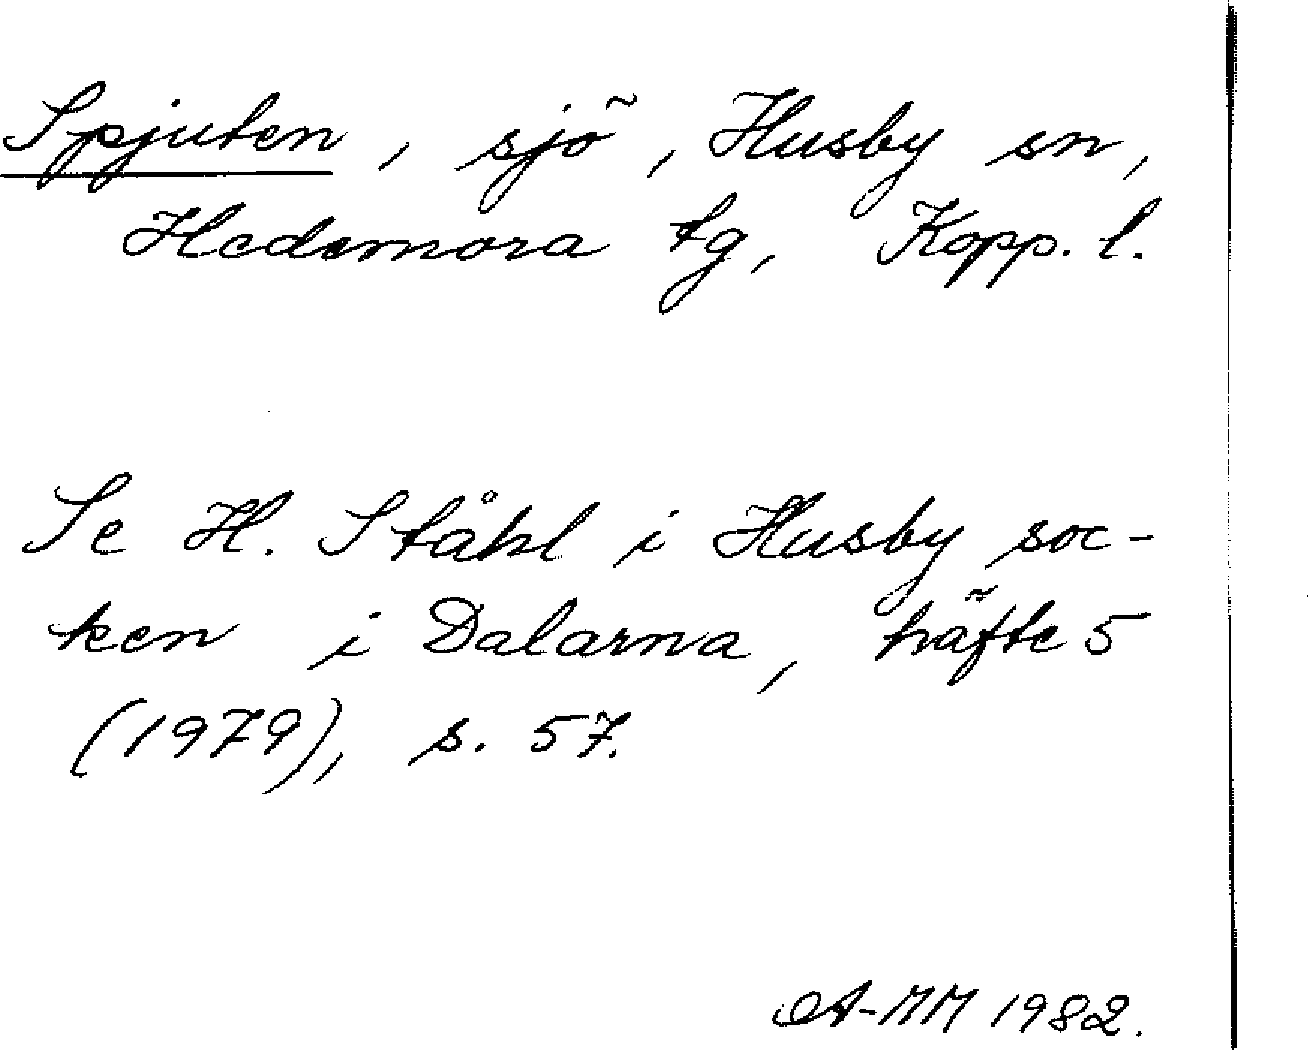 Spjuten, sjö, Husby sn,
Hedemora tg, Kopp. l.
Se H. Ståhl i Husby soc-
ken i Dalarna, häfte 5
(1979), s. 57.
A-MM 1982.